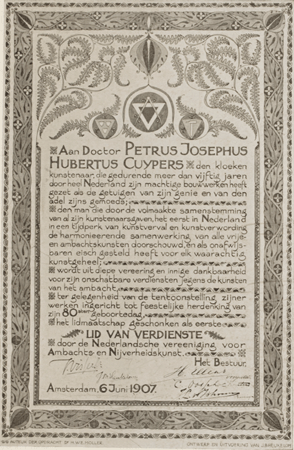 Aan Doctor PETRUS JOSEPHUS
HUBERTUS CUYPERS den kloeken
kunstenaar die gedurende meer dan vijftig jaren
door heel Nederland zijn machtige bouwwerken heeft
gezet als de getuigen van zijn genie en van den
adel zijns gemoeds;
den man die door de volmaakte samenstemming
van al zijn kunstenaarsgaven, het eerst in Nederland
in een tijdperk van kunstverval en kunstverwording
de harmonieerende samenwerking van alle vrije-
en ambachtskunsten doorschouwd, en als onafwijs-
baren eisch gesteld heeft voor elk waarachtig
kunstgeheel;
wordt uit diepe vereering en innige dankbaarheid
voor zijn onschatbare verdiensten jegens de kunsten
van het ambacht,
ter gelegenheid van de tentoonstelling zijner
werken ingericht tot feestelijke herdenking van
zijn 80sten geboortedag
het lidmaatschap geschonken als eerste
LID VAN VERDIENSTE
door de Nederlandsche vereeniging voor
Ambachts en Nijverheidskunst.
Het Bestuur,
Amsterdam, 6 Juni 1907.